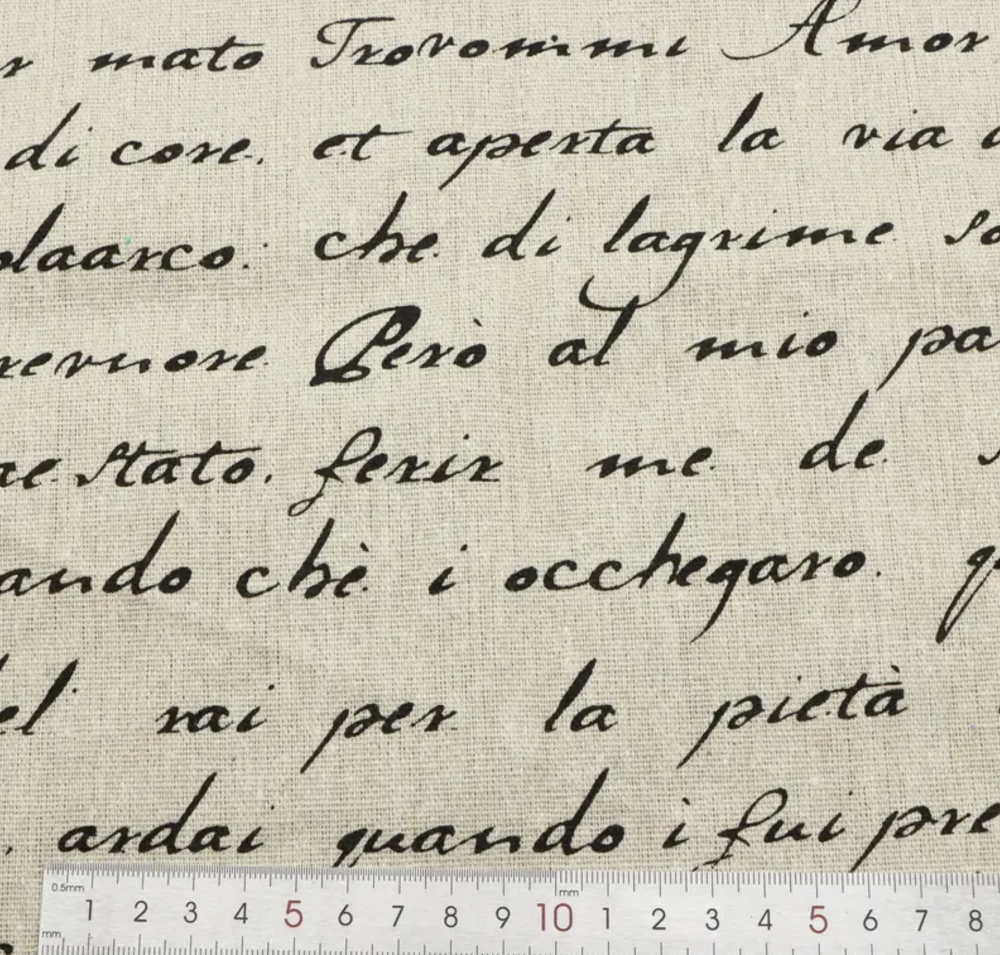 mato Trovommi Amor
di core. et aperta la via
che di lagrime
Però al mio
stato. ferir me de
chè i occhegaro.
rai per la pietà
ardai quando i fui
0.5mm mm
1 2 3 4 5 6 7 8 9 10 1 2 3 4 5 6 7 8
mm